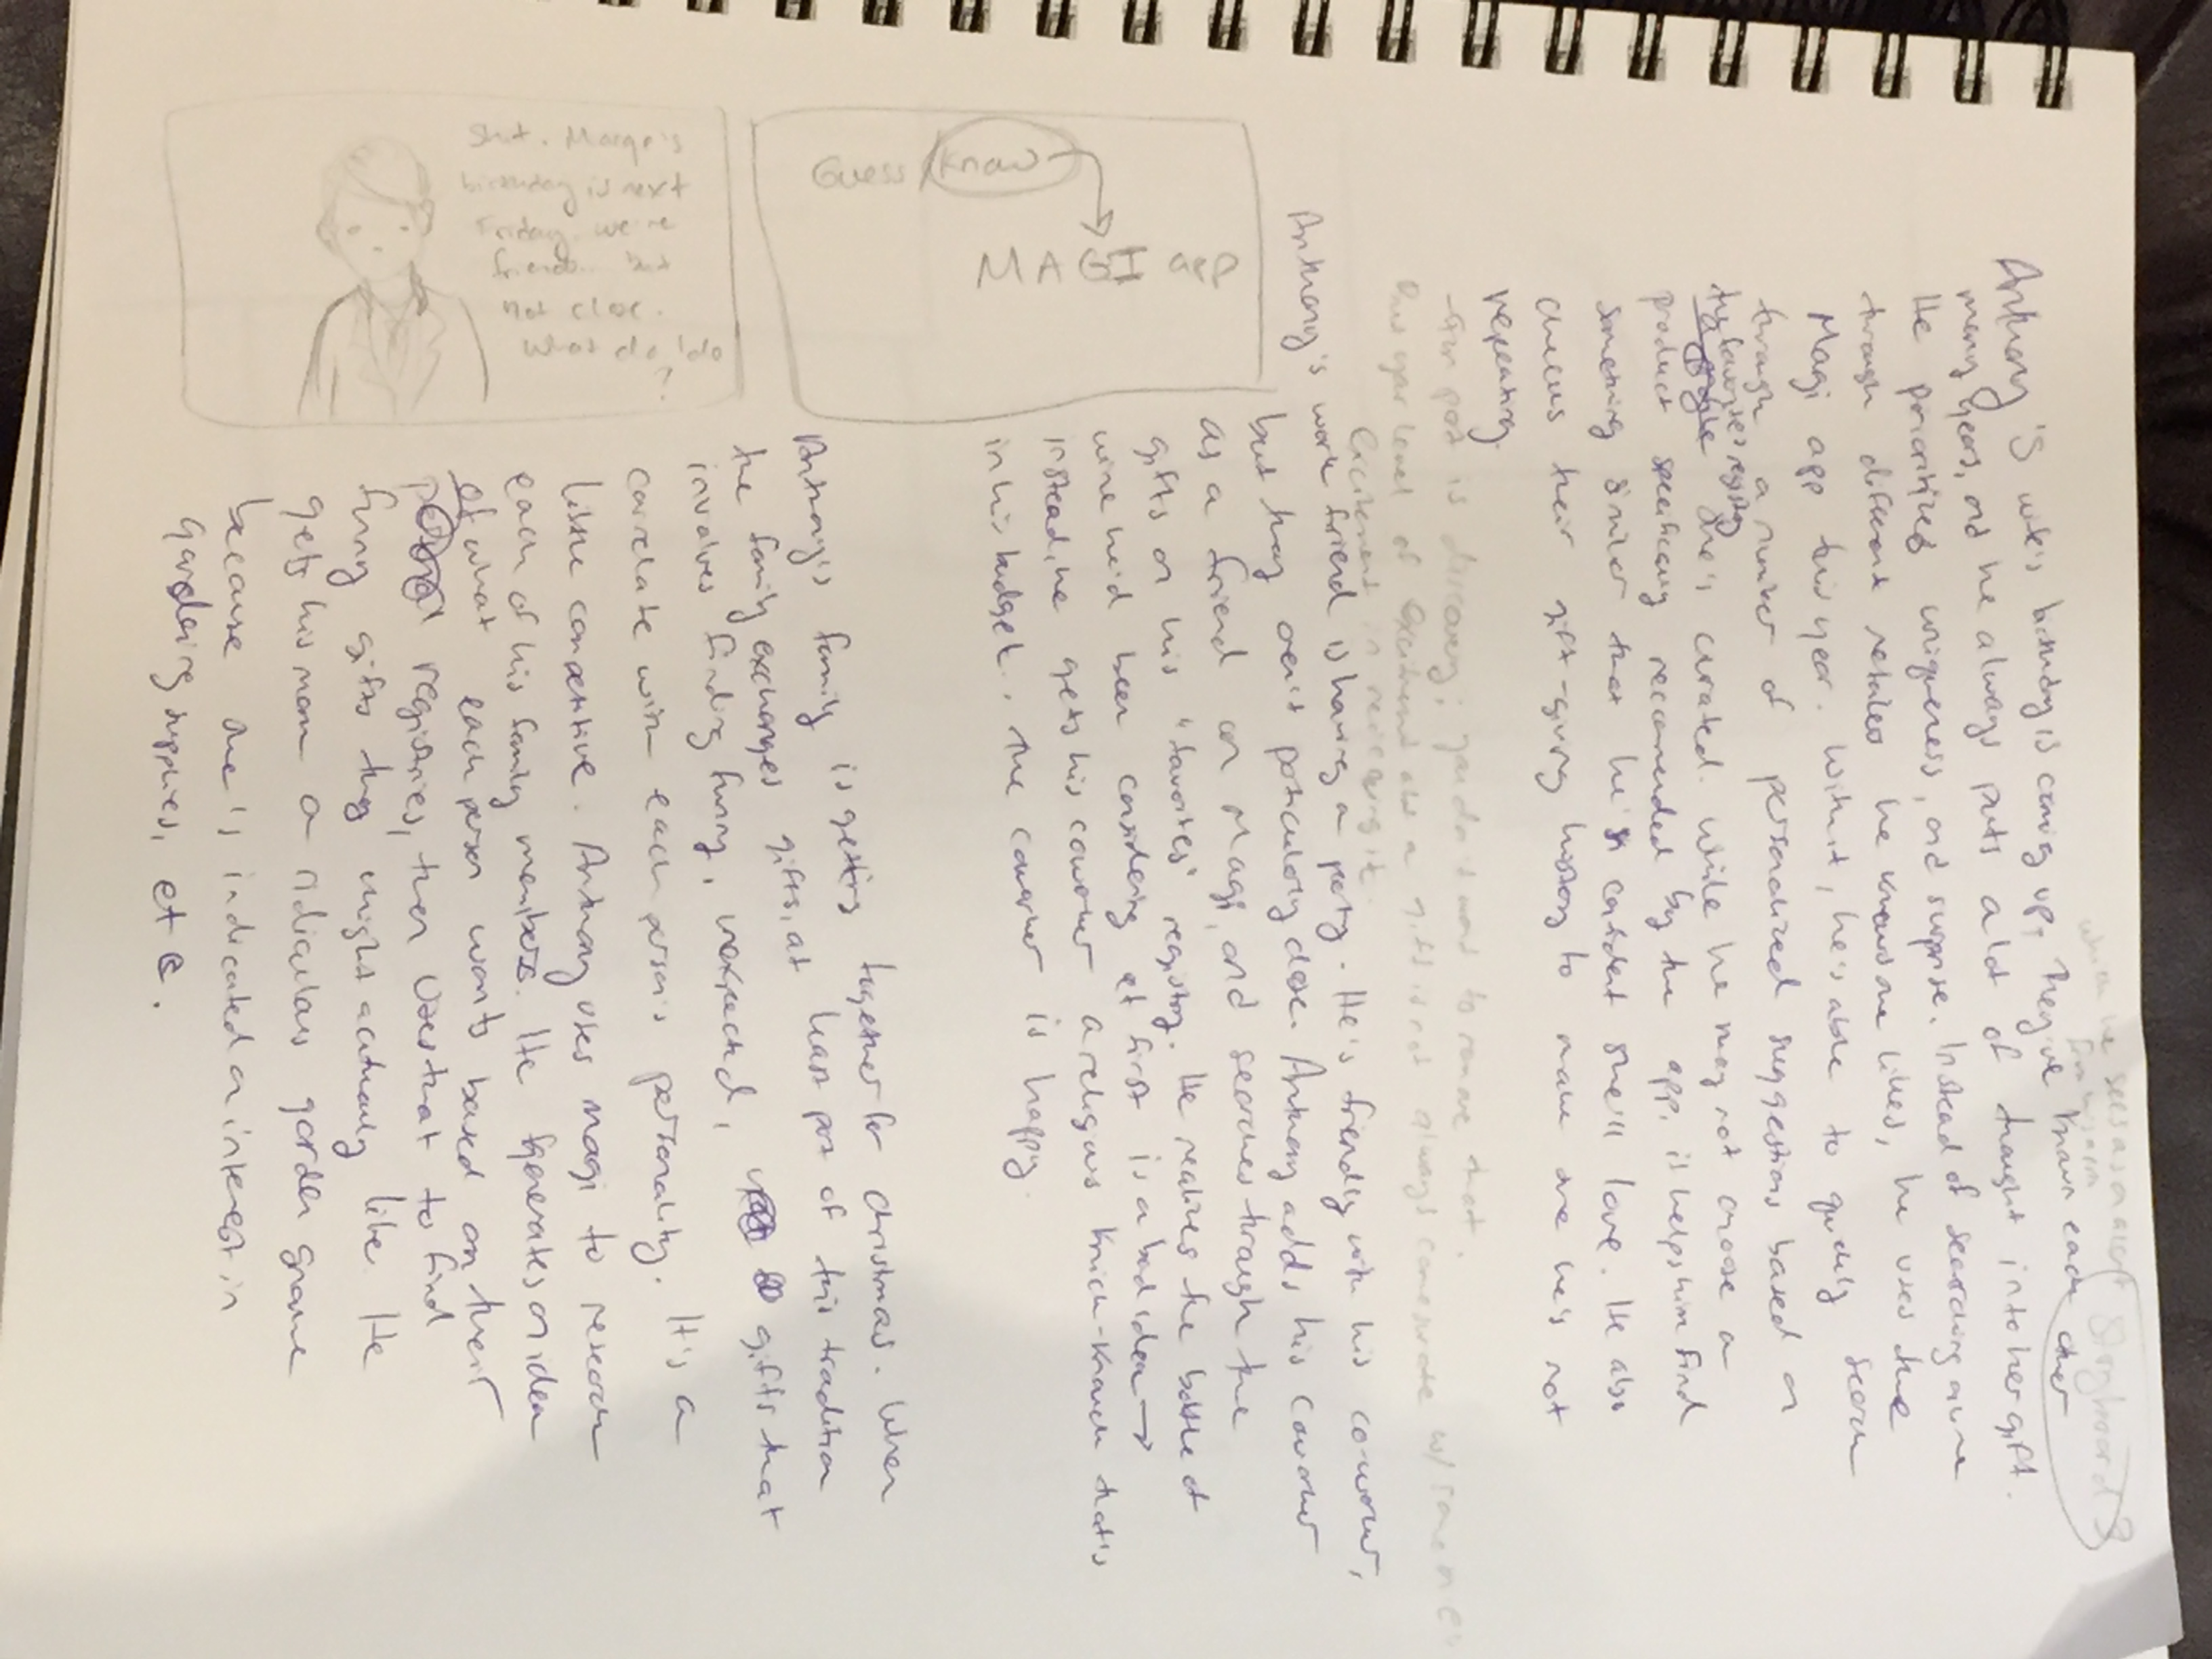 Storyboard 3
Anthony's wife's birthday is coming up. They've known each other
many years, and he always puts a lot of thought into her gift.
He prioritizes uniqueness, and surprise. Instead of searching
through different retailers he knows likes, he uses the
Magi app this year. With it, he's able to quickly search
through a number of personalized suggestions based on
favorites registry
he's curated. While he may not choose a
product specifically recommended by the app, it helps him find
something similar that he's confident she'll love. He also
checks their gift-giving history to make sure he's not
repeating.
- fun part is discovery; you don't want to remove that.
Your level of excitement abt a gift is not always commensurate w/ someone's
excitement in receiving it.
Anthony's work friend is having a party. He's friendly with his co-worker,
but they aren't particularly close. Anthony adds his coworker
as a friend on Magi, and searches through the
gifts on his "favorites" registry. He realizes the bottle of
wine he'd been considering at first is a bad idea →
instead, he gets his coworker a religious knick-knack that's
in his budget. The coworker is happy.
Anthony's family is getting together for Christmas. When
the family exchanges gifts, at least part of this tradition
involves finding funny, unexpected, gifts that
correlate with each person's personality. It's a
little competitive. Anthony uses magi to research
each of his family members. He generates an idea
of what each person wants based on their
registries, then uses that to find
funny gifts they might actually like. He
gets his mom a ridiculous garden gnome
because she's indicated an interest in
gardening supplies, etc.
Guess know
MAGI app
Shit. Marge's
birthday is next
Friday. we're
friends.. but
not close.
What do I do
?